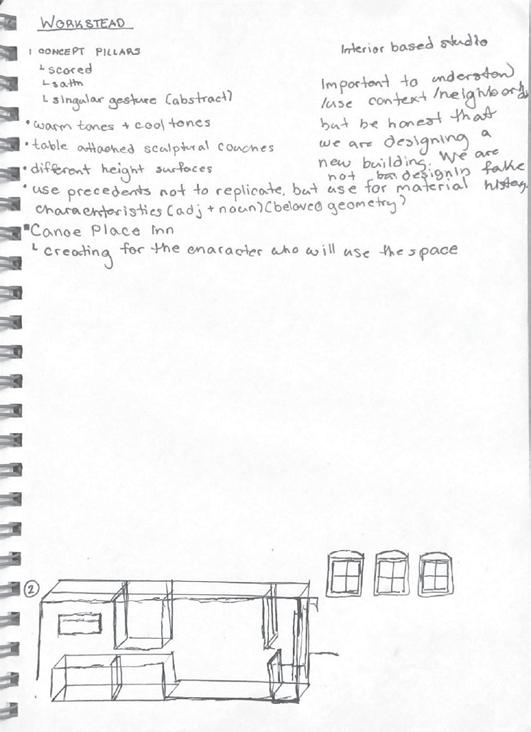 WORKSTEAD
1 CONCEPT PILLARS
└ scored
└ satin
└ singular gesture (abstract)
• warm tones + cool tones
• table attached sculptural couches
• different height surfaces
• use precedents not to replicate, but use for material
characteristics (adj + noun) (beloved geometry)
▪ Canoe Place Inn
└ creating for the character who will use the space
Interior based studio
Important to understand
/use context /neighborhood
but be honest that
we are designing a
new building. We are
not designing fake
history.
②